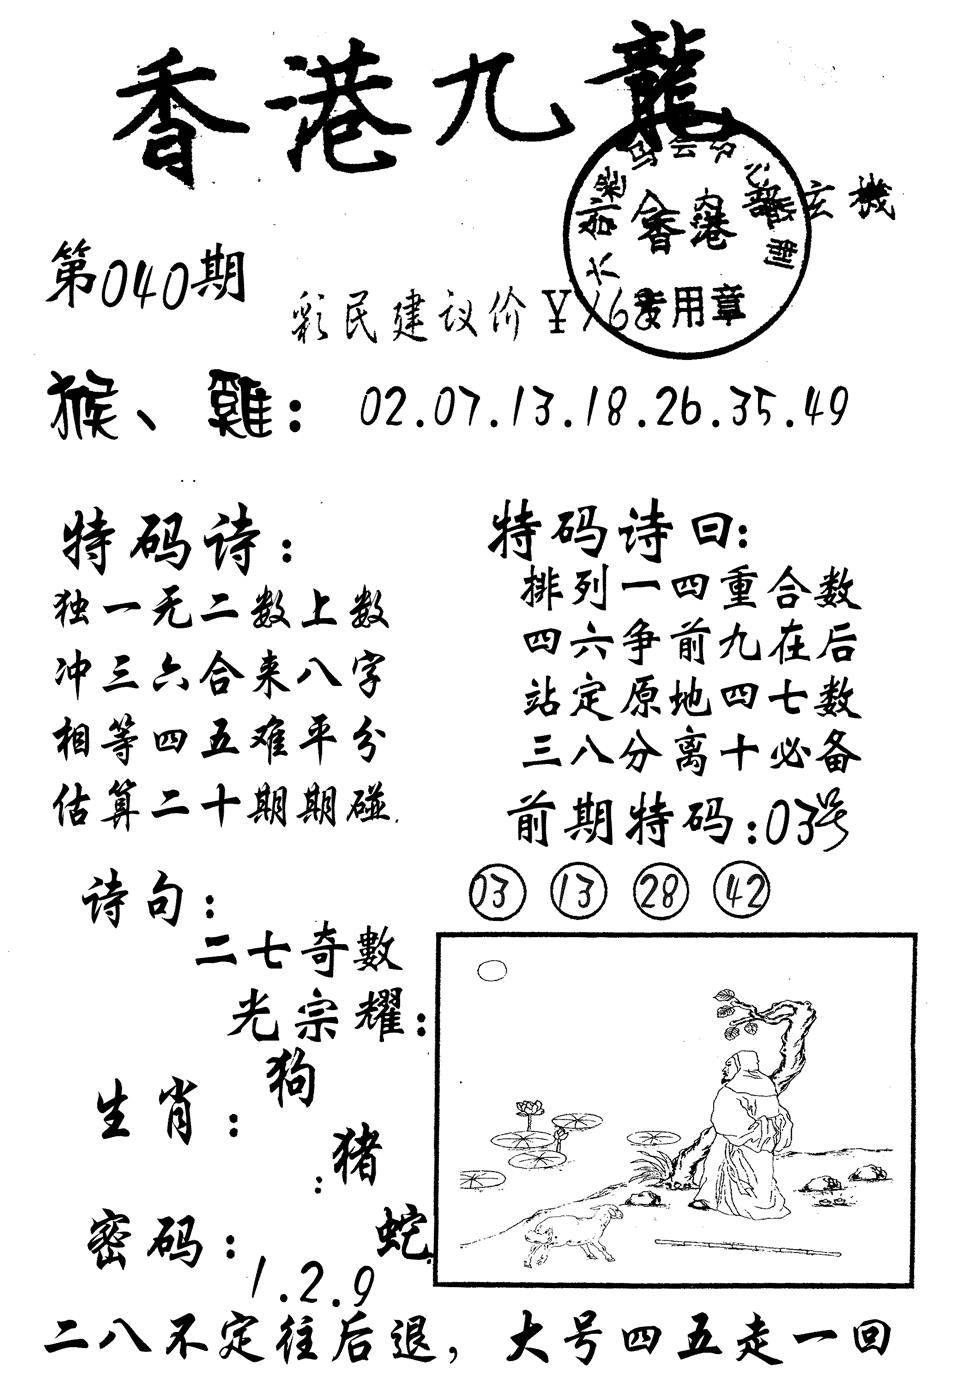 香港九龍
玄機
香港
专用章
第040期
彩民建议价¥168
猴、雞：02.07.13.18.26.35.49
特码诗：
独一无二数上数
冲三六合来八字
相等四五难平分
估算二十期期碰
特码诗曰：
排列一四重合数
四六争前九在后
站定原地四七数
三八分离十必备
前期特码：03号
03 13 28 42
诗句：
二七奇數
光宗耀：
生肖：狗
猪
蛇
密码：1.2.9
二八不定往后退，大号四五走一回